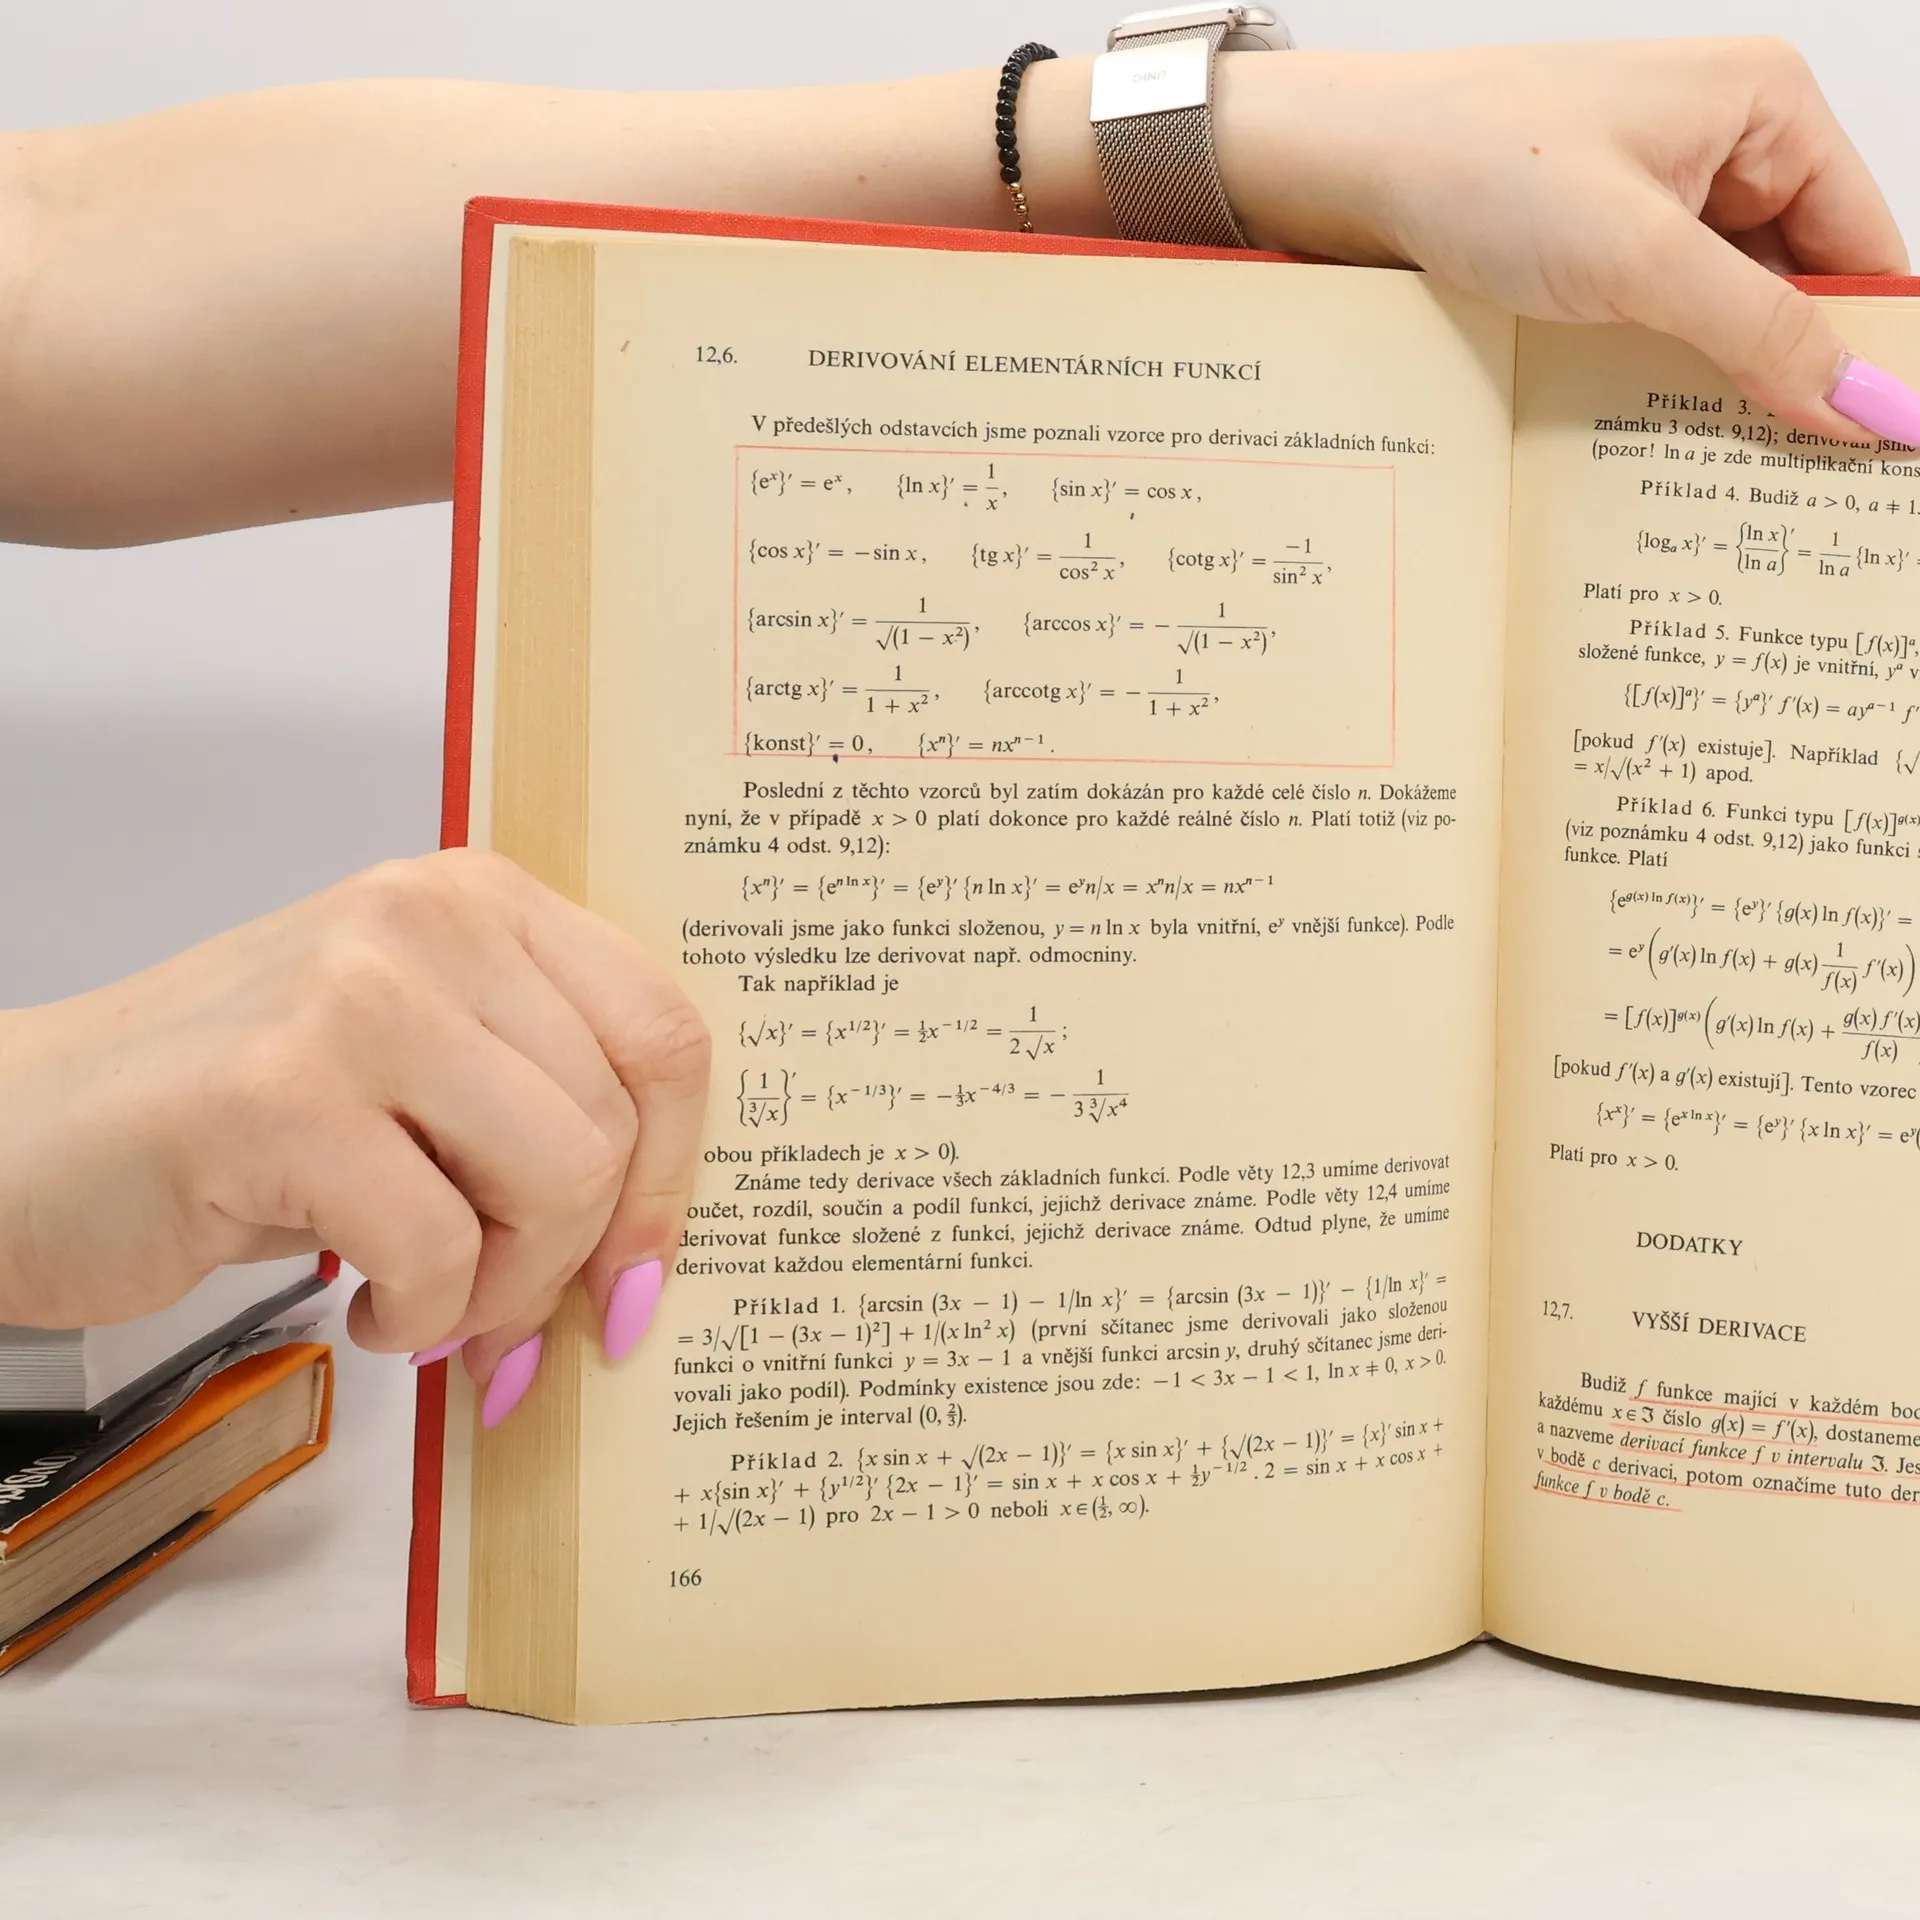 12,6. DERIVOVÁNÍ ELEMENTÁRNÍCH FUNKCÍ
V předešlých odstavcích jsme poznali vzorce pro derivaci základních funkcí:
{eˣ}′ = eˣ, {ln x}′ = 1/x, {sin x}′ = cos x,
{cos x}′ = −sin x, {tg x}′ = 1/cos² x, {cotg x}′ = −1/sin² x,
{arcsin x}′ = 1/√(1 − x²), {arccos x}′ = − 1/√(1 − x²),
{arctg x}′ = 1/(1 + x²), {arccotg x}′ = − 1/(1 + x²),
{konst}′ = 0, {xⁿ}′ = nxⁿ⁻¹.
Poslední z těchto vzorců byl zatím dokázán pro každé celé číslo n. Dokážeme
nyní, že v případě x > 0 platí dokonce pro každé reálné číslo n. Platí totiž (viz po-
známku 4 odst. 9,12):
{xⁿ}′ = {e^(n ln x)}′ = {e^y}′ {n ln x}′ = e^y n/x = xⁿn/x = nxⁿ⁻¹
(derivovali jsme jako funkci složenou, y = n ln x byla vnitřní, e^y vnější funkce). Podle
tohoto výsledku lze derivovat např. odmocniny.
Tak například je
{√x}′ = {x^(1/2)}′ = ½x^(−1/2) = 1/(2√x);
{1/∛x}′ = {x^(−1/3)}′ = −⅓x^(−4/3) = − 1/(3∛x⁴)
obou příkladech je x > 0).
Známe tedy derivace všech základních funkcí. Podle věty 12,3 umíme derivovat
oučet, rozdíl, součin a podíl funkcí, jejichž derivace známe. Podle věty 12,4 umíme
derivovat funkce složené z funkcí, jejichž derivace známe. Odtud plyne, že umíme
derivovat každou elementární funkci.
Příklad 1. {arcsin (3x − 1) − 1/ln x}′ = {arcsin (3x − 1)}′ − {1/ln x}′ =
= 3/√[1 − (3x − 1)²] + 1/(x ln² x) (první sčítanec jsme derivovali jako složenou
funkci o vnitřní funkci y = 3x − 1 a vnější funkci arcsin y, druhý sčítanec jsme deri-
vovali jako podíl). Podmínky existence jsou zde: −1 < 3x − 1 < 1, ln x ≠ 0, x > 0.
Jejich řešením je interval (0, ⅔).
Příklad 2. {x sin x + √(2x − 1)}′ = {x sin x}′ + {√(2x − 1)}′ = {x}′ sin x +
+ x{sin x}′ + {y^(1/2)}′ {2x − 1}′ = sin x + x cos x + ½y^(−1/2) . 2 = sin x + x cos x +
+ 1/√(2x − 1) pro 2x − 1 > 0 neboli x ∈ (½, ∞).
166
Příklad 3.
známku 3 odst. 9,12); derivovali jsme
(pozor! ln a je zde multiplikační kons
Příklad 4. Budiž a > 0, a ≠ 1.
{logₐ x}′ = {ln x/ln a}′ = 1/ln a {ln x}′ =
Platí pro x > 0.
Příklad 5. Funkce typu [f(x)]ᵃ,
složené funkce, y = f(x) je vnitřní, yᵃ v
{[f(x)]ᵃ}′ = {yᵃ}′ f′(x) = ayᵃ⁻¹ f′
[pokud f′(x) existuje]. Například {√
= x/√(x² + 1) apod.
Příklad 6. Funkci typu [f(x)]^g(x)
(viz poznámku 4 odst. 9,12) jako funkci s
funkce. Platí
{e^(g(x) ln f(x))}′ = {e^y}′ {g(x) ln f(x)}′ =
= e^y (g′(x) ln f(x) + g(x) 1/f(x) f′(x))
= [f(x)]^g(x) (g′(x) ln f(x) + g(x) f′(x)/f(x)
[pokud f′(x) a g′(x) existují]. Tento vzorec
{xˣ}′ = {e^(x ln x)}′ = {e^y}′ {x ln x}′ = e^y(
Platí pro x > 0.
DODATKY
12,7. VYŠŠÍ DERIVACE
Budiž f funkce mající v každém boc
každému x ∈ ℑ číslo g(x) = f′(x), dostaneme
a nazveme derivací funkce f v intervalu ℑ. Jes
v bodě c derivaci, potom označíme tuto der
funkce f v bodě c.